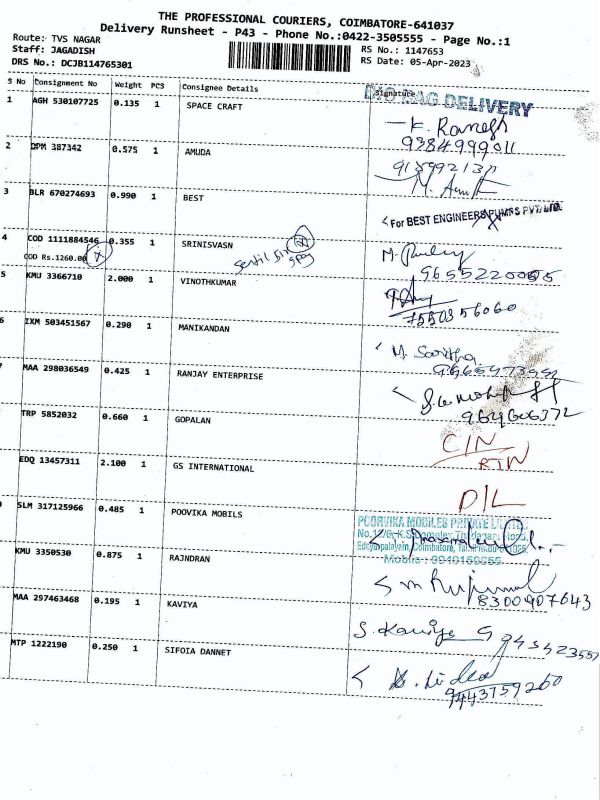 THE PROFESSIONAL COURIERS, COIMBATORE-641037
Delivery Runsheet - P43 - Phone No.:0422-3505555 - Page No.:1
Route: TVS NAGAR RS No.: 1147653
Staff: JAGADISH RS Date: 05-Apr-2023
DRS No.: DCJB114765301
S No Consignment No Weight PCS Consignee Details Signature
BIG BAG DELIVERY
1 AGH 530107725 0.135 1 SPACE CRAFT
K. Ranesh
9384999011
2 DPM 387342 0.575 1 AMUDA
3 BLR 670274693 0.990 1 BEST
For BEST ENGINEERS PUMPS PVT. LTD.
4 COD 1111884546 0.355 1 SRINISVASN
COD Rs.1260.00
9655220005
5 KMU 3366710 2.000 1 VINOTHKUMAR
7550356060
6 IXM 503451567 0.290 1 MANIKANDAN
7 MAA 298036549 0.425 1 RANJAY ENTERPRISE
964606372
TRP 5852032 0.660 1 GOPALAN
CIN
RTN
EDQ 13457311 2.100 1 GS INTERNATIONAL
D/L
SLM 317125966 0.485 1 POOVIKA MOBILS
POORVIKA MOBILES PRIVATE LIMITED
KMU 3350530 0.875 1 RAJNDRAN
8300907643
MAA 297463468 0.195 1 KAVIYA
S. Kaviya
MTP 1222190 0.250 1 SIFOIA DANNET
9443759260